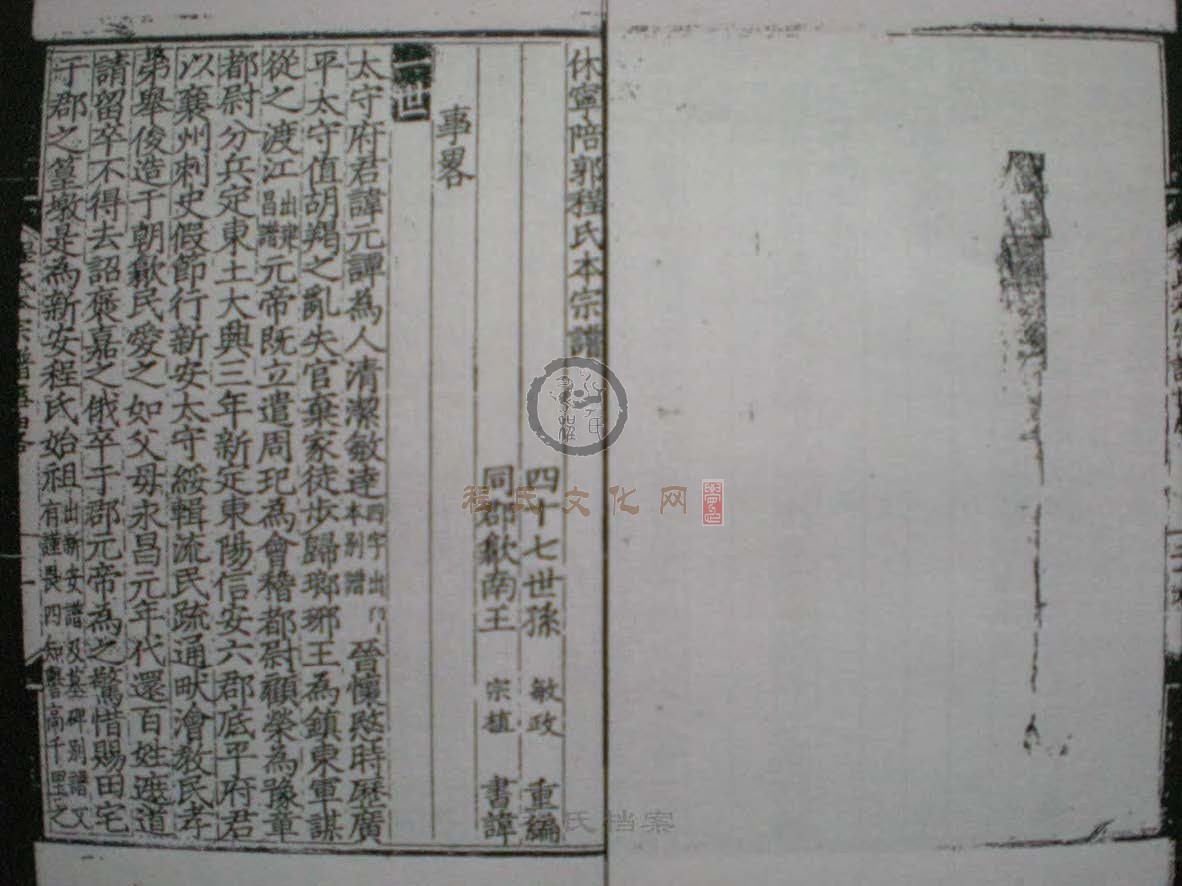 休寧陪郭程氏本宗譜
四十七世孫 敏政 重編
同郡歙南王 宗植 書諱
事畧
世
太守府君諱元譚為人清潔敏達四字出本別譜晉懷愍時歷廣
平太守值胡羯之亂失官棄家徒步歸瑯琊王為鎮東軍謀
從之渡江出東昌譜元帝既立遣周玘為會稽都尉顧榮為豫章
都尉分兵定東土大興三年新定東陽信安六郡底平府君
以襄州刺史假節行新安太守綏輯流民疏通畎澮教民孝
弟舉俊造于朝歙民愛之如父母永昌元年代還百姓遮道
請留卒不得去詔褒嘉之俄卒于郡元帝為之驚惜賜田宅
于郡之篁墩是為新安程氏始祖出新安譜及墓碑別譜又有謹畏四知譽高千里之
程氏文化网
氏档案